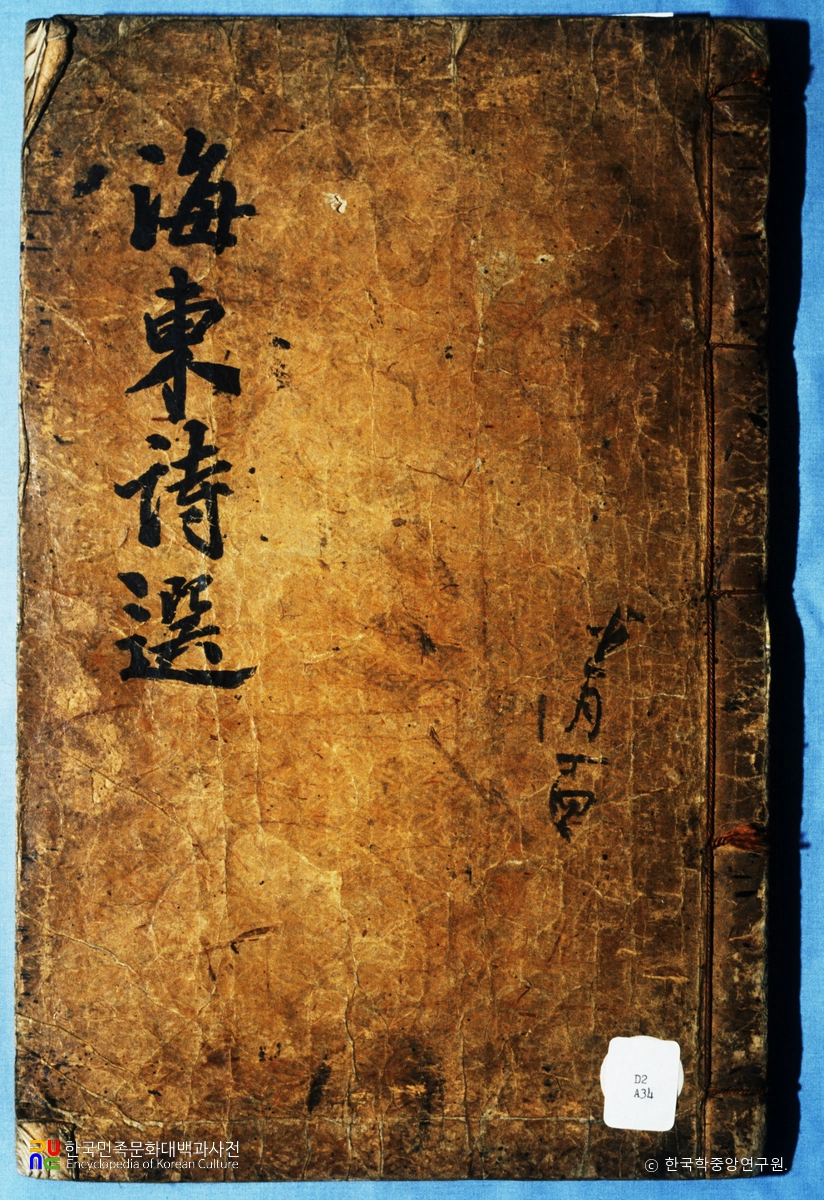 海東詩選
D2
A34
한국민족문화대백과사전
Encyclopedia of Korean Culture
ⓒ 한국학중앙연구원.